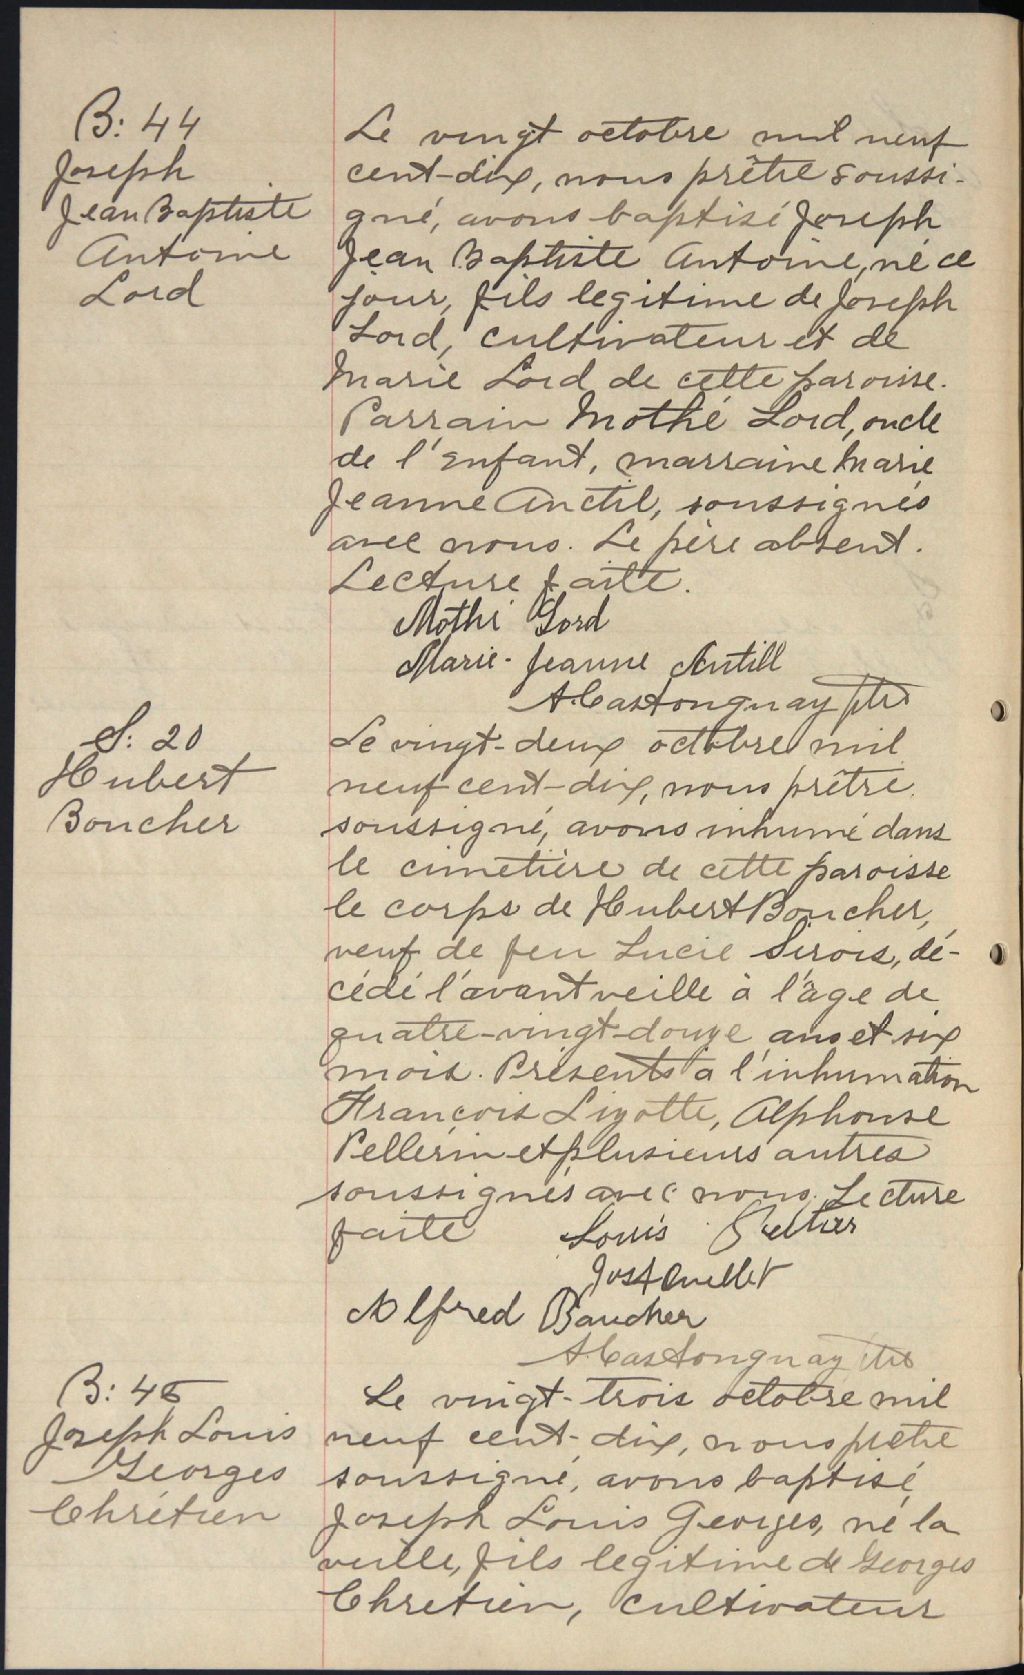 B: 44
Joseph
Jean Baptiste
Antoine
Lord
Le vingt octobre mil neuf
cent-dix, nous prêtre soussi-
gné, avons baptisé Joseph
Jean Baptiste Antoine, né ce
jour, fils legitime de Joseph
Lord, cultivateur et de
Marie Lord de cette paroisse.
Parrain Mothé Lord, oncle
de l'enfant, marraine Marie
Jeanne Anctil, soussignés
avec nous. Le père absent.
Lecture faite.
Mothé Lord
Marie-Jeanne Antill
A. Castonguay ptre
S: 20
Hubert
Boucher
Le vingt-deux octobre mil
neuf cent-dix, nous prêtre
soussigné, avons inhumé dans
le cimetière de cette paroisse
le corps de Hubert Boucher,
veuf de feu Lucie Sirois, dé-
cédé l'avant veille à l'âge de
quatre-vingt-douze ans et six
mois. Présents à l'inhumation
François Lizotte, Alphonse
Pellerin et plusieurs autres
soussignés avec nous. Lecture
faite
Louis
Jos Ouellet
Alfred Baucher
A. Castonguay ptre
B: 45
Joseph Louis
Georges
Chrétien
Le vingt-trois octobre mil
neuf cent-dix, nous prêtre
soussigné, avons baptisé
Joseph Louis Georges, né la
veille, fils legitime de Georges
Chretien, cultivateur